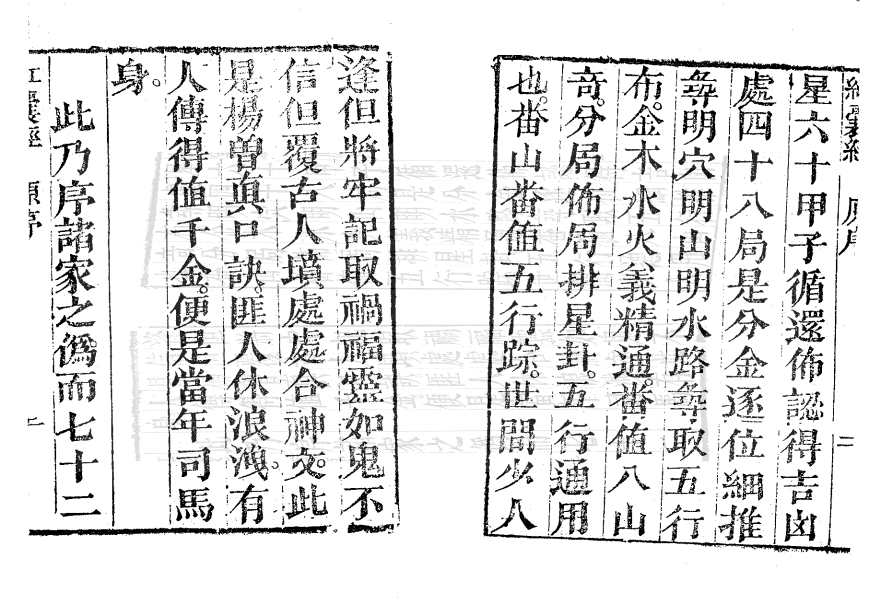 紅囊經 原序 二
星六十甲子循還佈認得吉凶
處四十八局是分金逐位細推
尋明穴明山明水路尋取五行
布。金木水火義精通。畨值八山
竒。分局佈局排星卦。五行通用
也。畨山畨值五行踪。世間少人
逢但將牢記取禍福霊如鬼不
信但覆古人墳。處處合神交。此
是楊曾真口訣。匪人休浪洩。有
人傳得值千金。便是當年司馬
身。
此乃序諸家之僞而七十二
紅囊經 原序 一